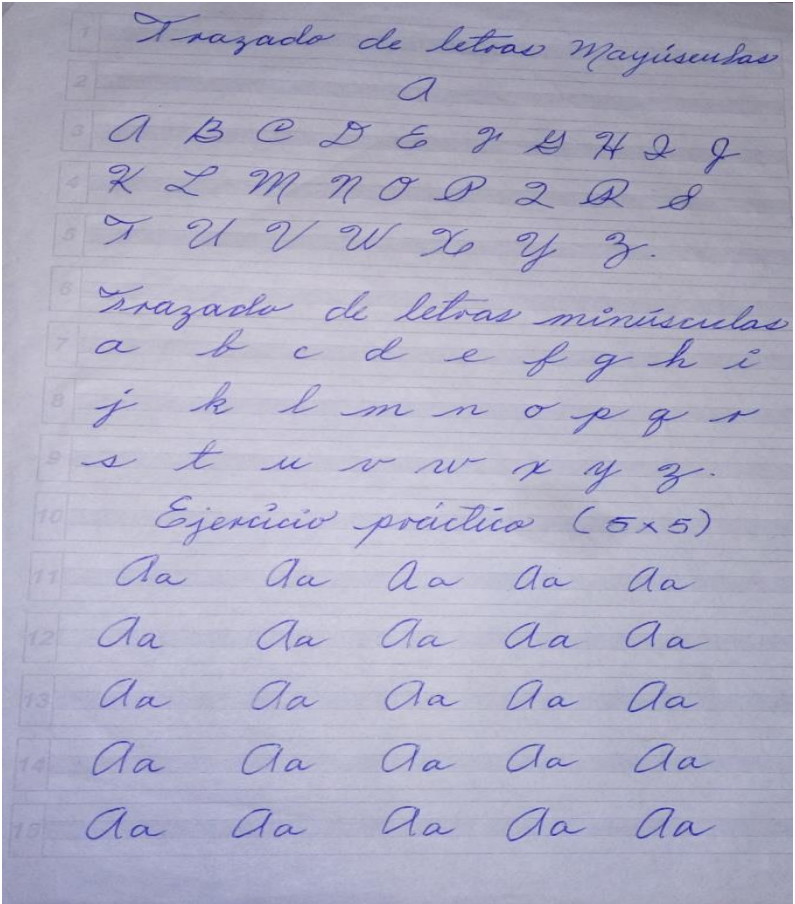 1 Trazado de letras Mayúsculas
2 A
3 A B C D E F G H I J
4 K L M N O P Q R S
5 T U V W X Y Z.
6 Trazado de letras minúsculas
7 a b c d e f g h i
8 j k l m n o p q r
9 s t u v w x y z.
10 Ejercicio práctico (5x5)
11 Aa Aa Aa Aa Aa
12 Aa Aa Aa Aa Aa
13 Aa Aa Aa Aa Aa
14 Aa Aa Aa Aa Aa
15 Aa Aa Aa Aa Aa